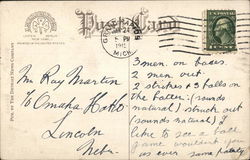 Post Card
MICH
PUB. BY THE DETROIT NEWS COMPANY
Mr Ray Martin
To Omaha
Lincoln
Neb.
3 men on bases.
2 men out.
2 strikes & 3 balls on
the batter. (sounds
natural) struck out
(sounds natural) I
like to see a ball
game wouldn't
as ever same